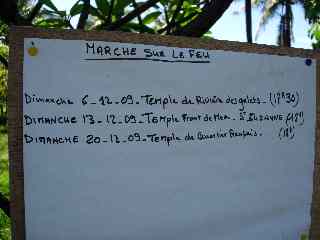 MARCHE SUR LE FEU
Dimanche 6-12-09-Temple de Rivière des galets-(17H30)
DIMANCHE 13-12-09-Temple Front de Mer. STE SUZANNE (18H)
DIMANCHE 20-12-09-Temple de Quartier Français.
(18H)